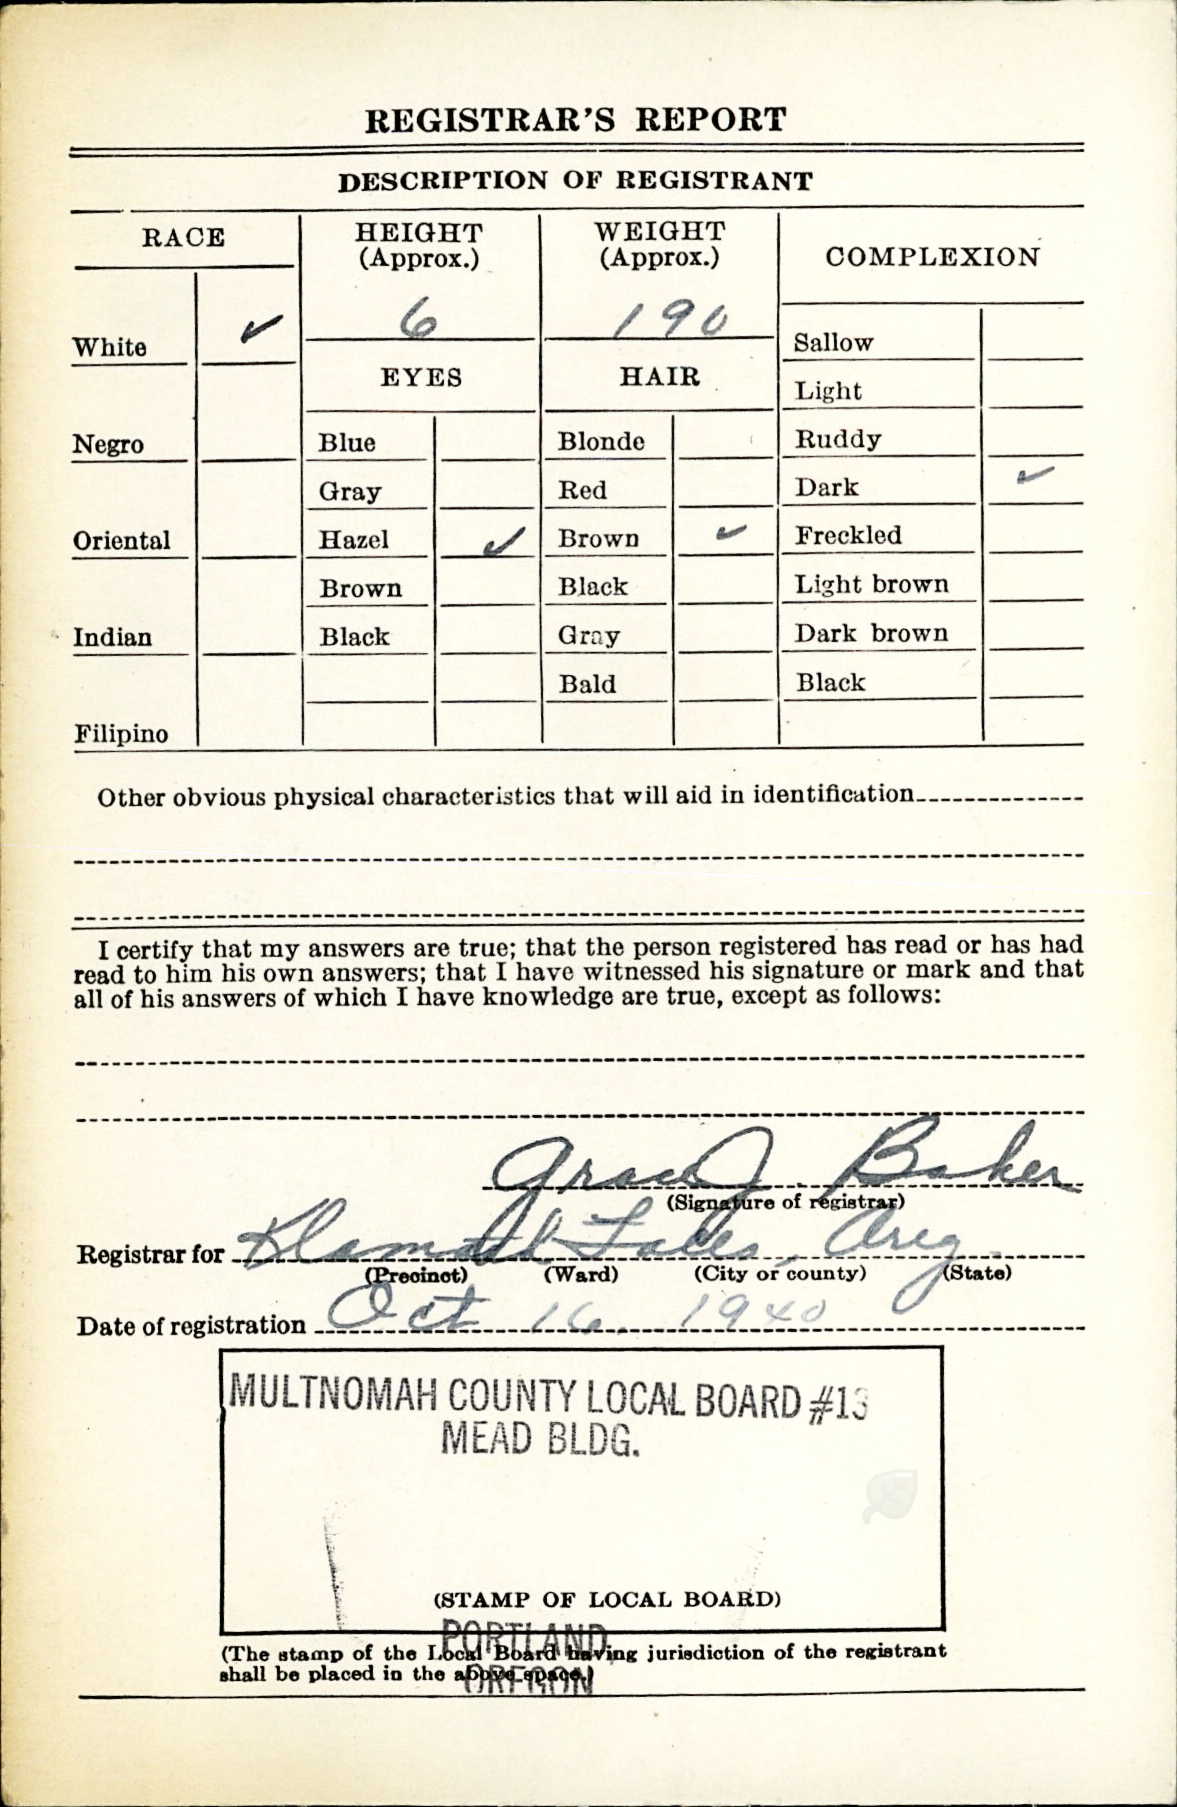 REGISTRAR'S REPORT
DESCRIPTION OF REGISTRANT
RACE
White ✓
Negro
Oriental
Indian
Filipino
HEIGHT
(Approx.)
6
EYES
Blue
Gray
Hazel ✓
Brown
Black
WEIGHT
(Approx.)
190
HAIR
Blonde
Red
Brown ✓
Black
Gray
Bald
COMPLEXION
Sallow
Light
Ruddy
Dark ✓
Freckled
Light brown
Dark brown
Black
Other obvious physical characteristics that will aid in identification
I certify that my answers are true; that the person registered has read or has had
read to him his own answers; that I have witnessed his signature or mark and that
all of his answers of which I have knowledge are true, except as follows:
Grace J. Baker
(Signature of registrar)
Registrar for Klamath Falls, Oreg.
(Precinct) (Ward) (City or county) (State)
Date of registration Oct 16, 1940
MULTNOMAH COUNTY LOCAL BOARD #13
MEAD BLDG.
(STAMP OF LOCAL BOARD)
PORTLAND,
(The stamp of the Local Board having jurisdiction of the registrant
shall be placed in the above space.)
OREGON